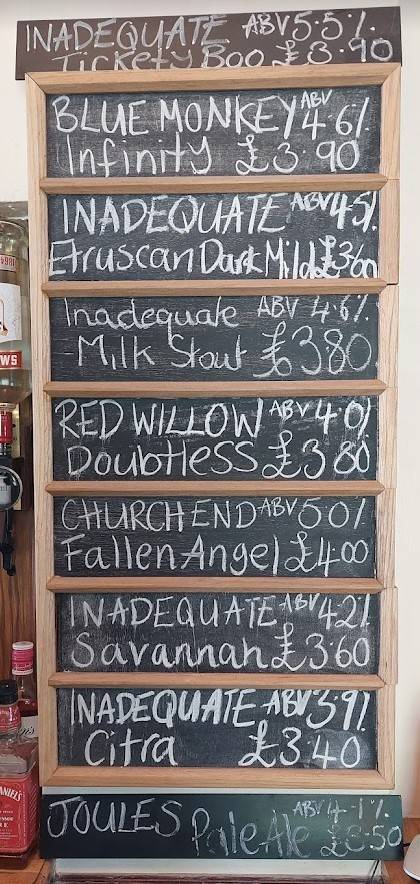 INADEQUATE ABV 5.5%
Tickety Boo £3.90
BLUE MONKEY ABV 4.6%
Infinity £3.90
INADEQUATE ABV 4.5%
Etruscan Dark Mild £3.60
Inadequate ABV 4.6%
Milk Stout £3.80
RED WILLOW ABV 4.0%
Doubtless £3.80
CHURCH END ABV 5.0%
Fallen Angel £4.00
INADEQUATE ABV 4.2%
Savannah £3.60
INADEQUATE ABV 3.9%
Citra £3.40
JOULES ABV 4.1%
Pale Ale £3.50